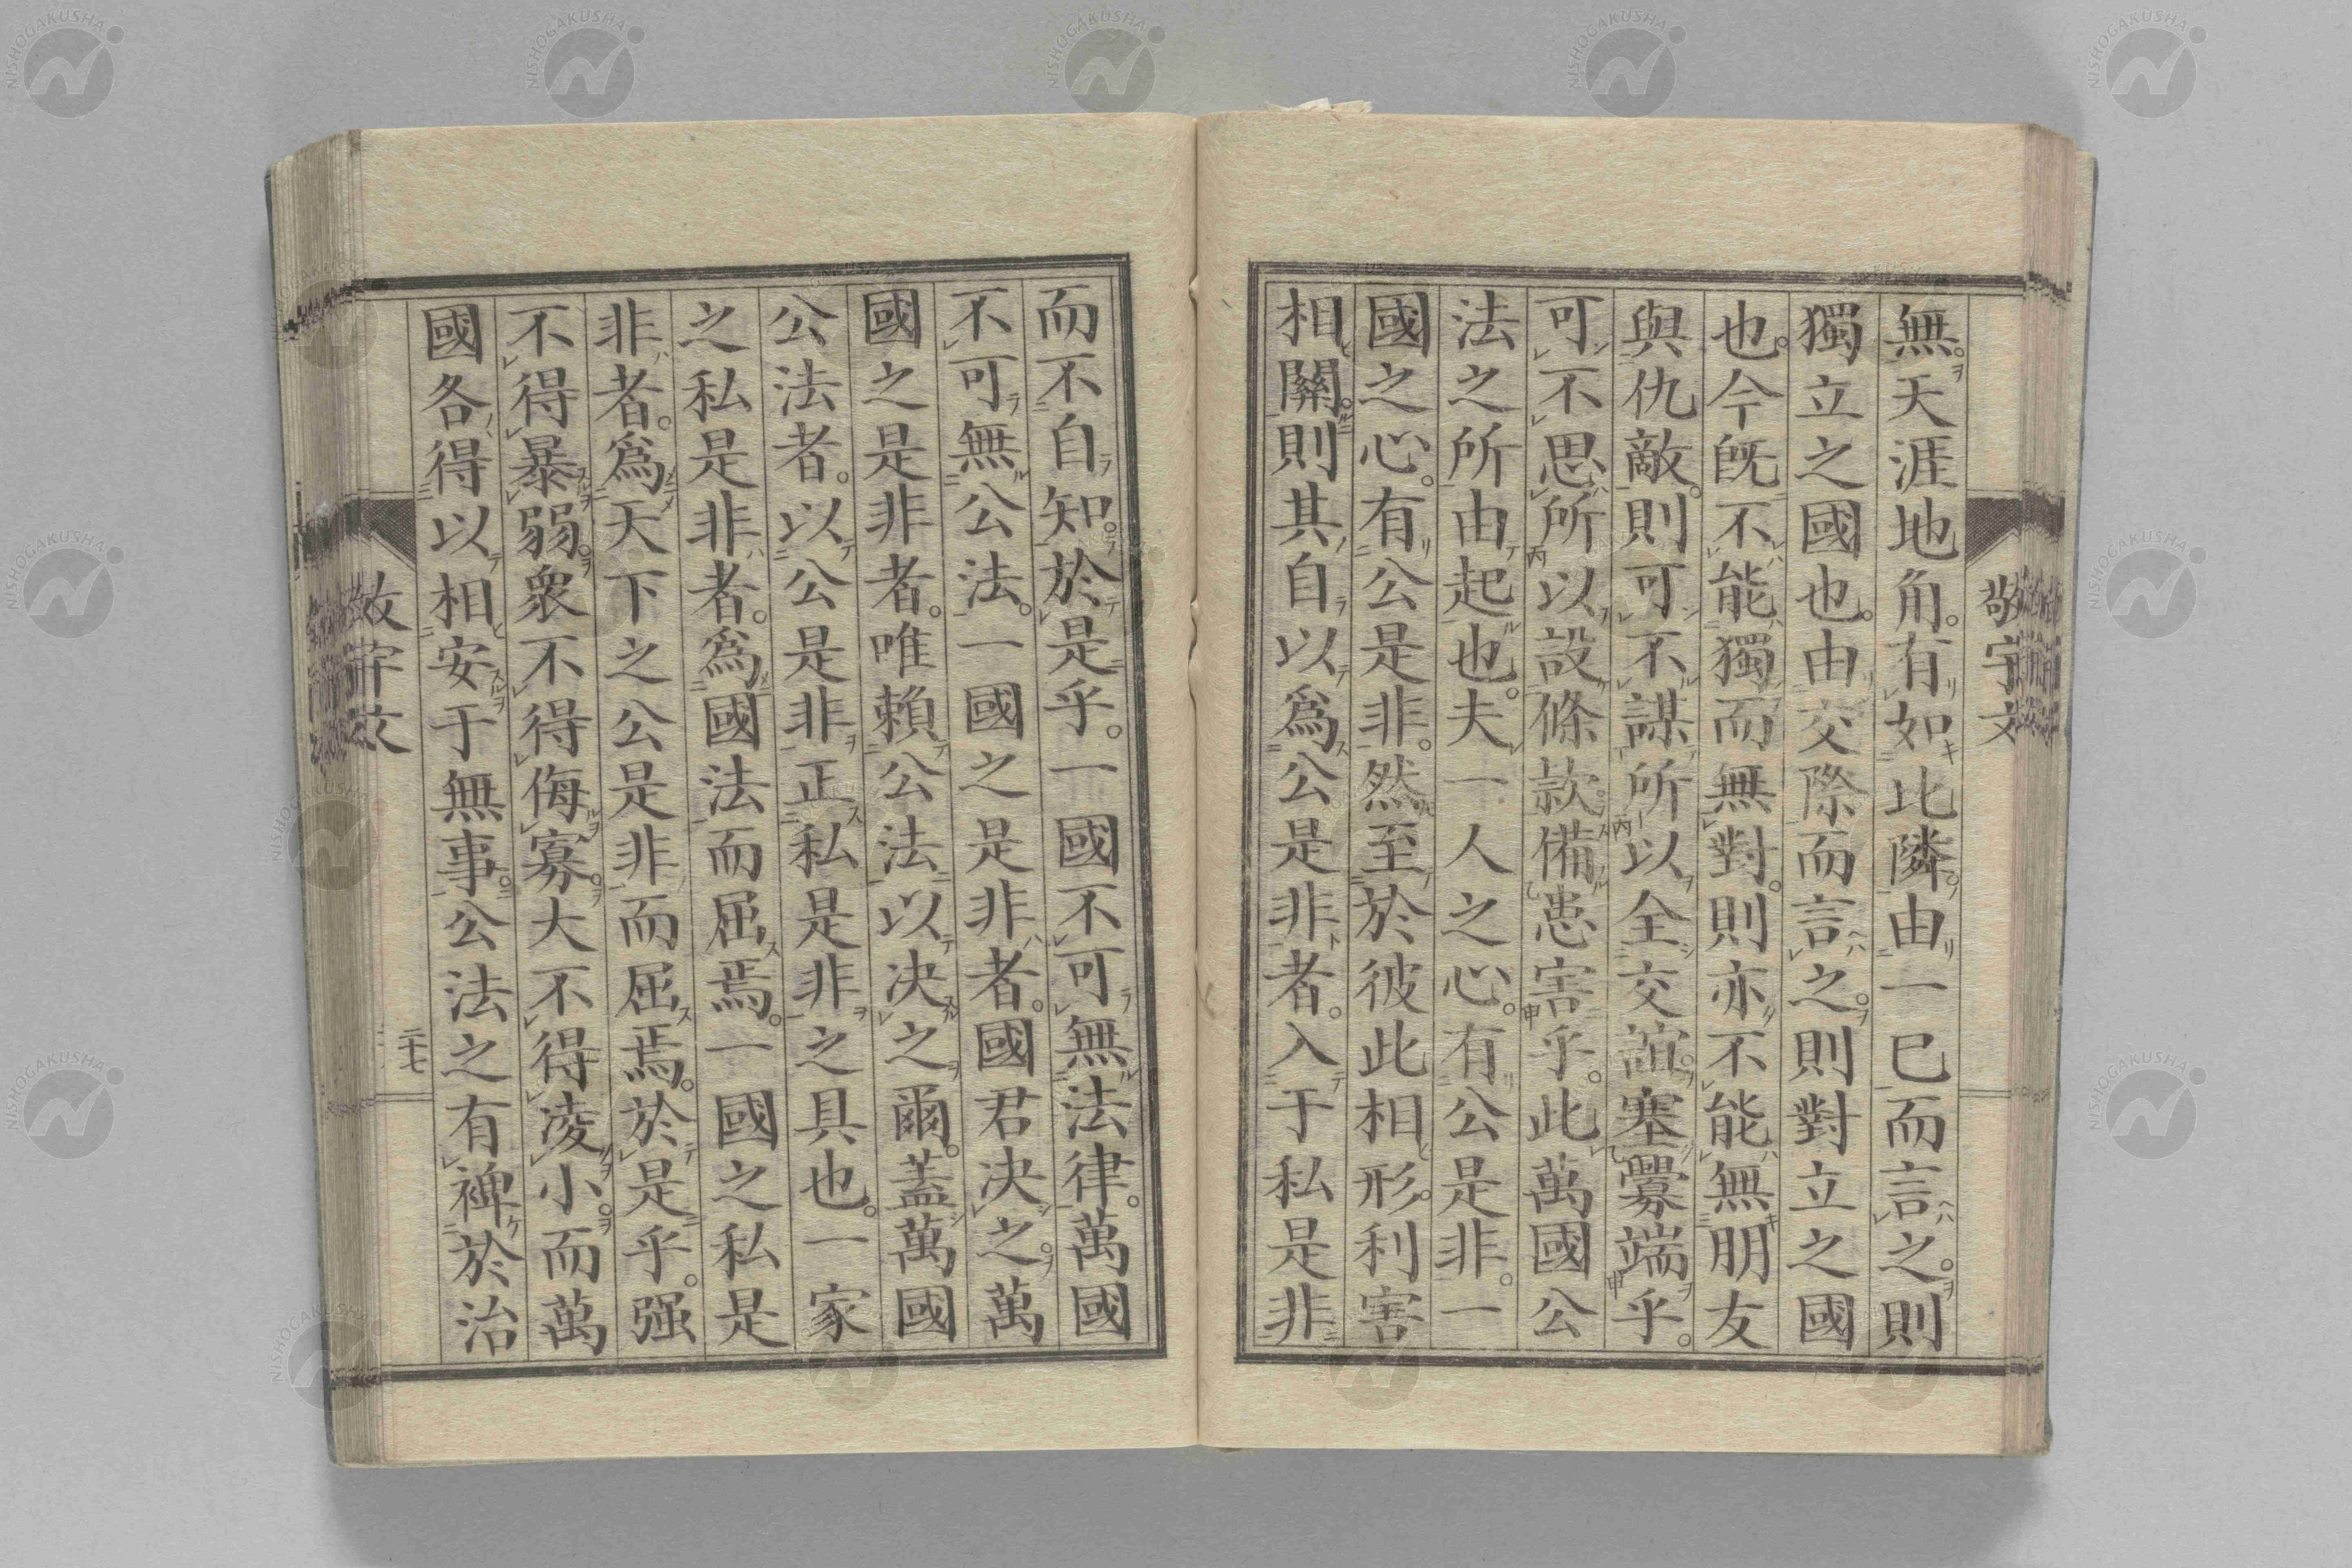 無。天涯地角。有如此隣。由一已而言之。則
獨立之國也。由交際而言之。則對立之國
也。今既不能獨而無對。則亦不能無朋友
與仇敵。則可不謀所以全交誼。塞釁端乎。
可不思所以設條款。備患害乎。此萬國公
法之所由起也。夫一人之心。有公是非。一
國之心。有公是非。然至於彼此相形。利害
相關。則其自以爲公是非者。入于私是非
而不自知。於是乎。一國不可無法律。萬國
不可無公法。一國之是非者。國君决之。萬
國之是非者。唯賴公法以决之爾。蓋萬國
公法者。以公是非正私是非之具也。一家
之私是非者。爲國法而屈焉。一國之私是
非者。爲天下之公是非而屈焉。於是乎。强
不得暴弱。衆不得侮寡。大不得凌小。而萬
國各得以相安于無事。公法之有裨於治
敬宇文
二十七
敬宇文
NISHOGAKUSHA